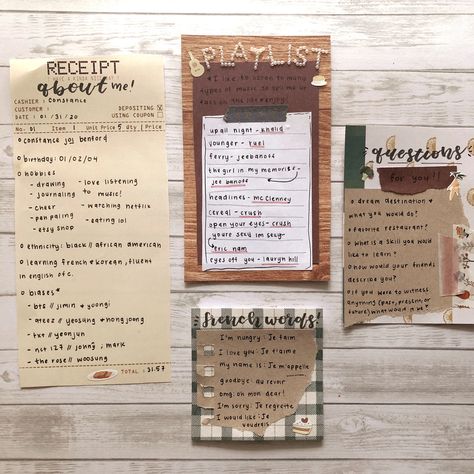 RECEIPT
about me!
CASHIER : Constance
CUSTOMER :
DEPOSITING
DATE : 01 / 31 / 20
USING COUPON
No. 01 Item 1 Unit Price 5 Qty Pcs
constance joi benford
birthday: 01/02/04
hobbies
- drawing
- journaling
- cheer
- pen paling
- etsy shop
- love listening
to music!
- watching netflix
- eating lol
ethnicity: black // african american
learning french & korean, fluent
in english ofc.
biases
- bts // jimin & yoongi
- ateez // yeosang & hongjoong
- txt // yeonjun
- nct 127 // johnny, mark
- the rose // woosung
TOTAL : 31.57
PLAYLIST
I like to listen to many
types of music
upall night - khalid
younger - ruel
ferry - jeebanoff
the girl in my memories -
jee banoff
headlines - mcClenney
cereal - crush
open your eyes - crush
youre sexy im sexy -
eric nam
eyes off you - lauryn hill
questions
for you!!
dream destination &
what you would do?
favorite restaurant?
what is a skill you would
like to learn?
how would your friends
describe you?
if you were to witness
anything (past, present, or
future) what would it be?
french words!
I'm hungry : Je faim
I love you : Je t'aime
my name is : Je m'appelle
goodbye : au revoir
omg : oh mon dear!
I'm sorry : Je regrette
I would like : Je
voudrais